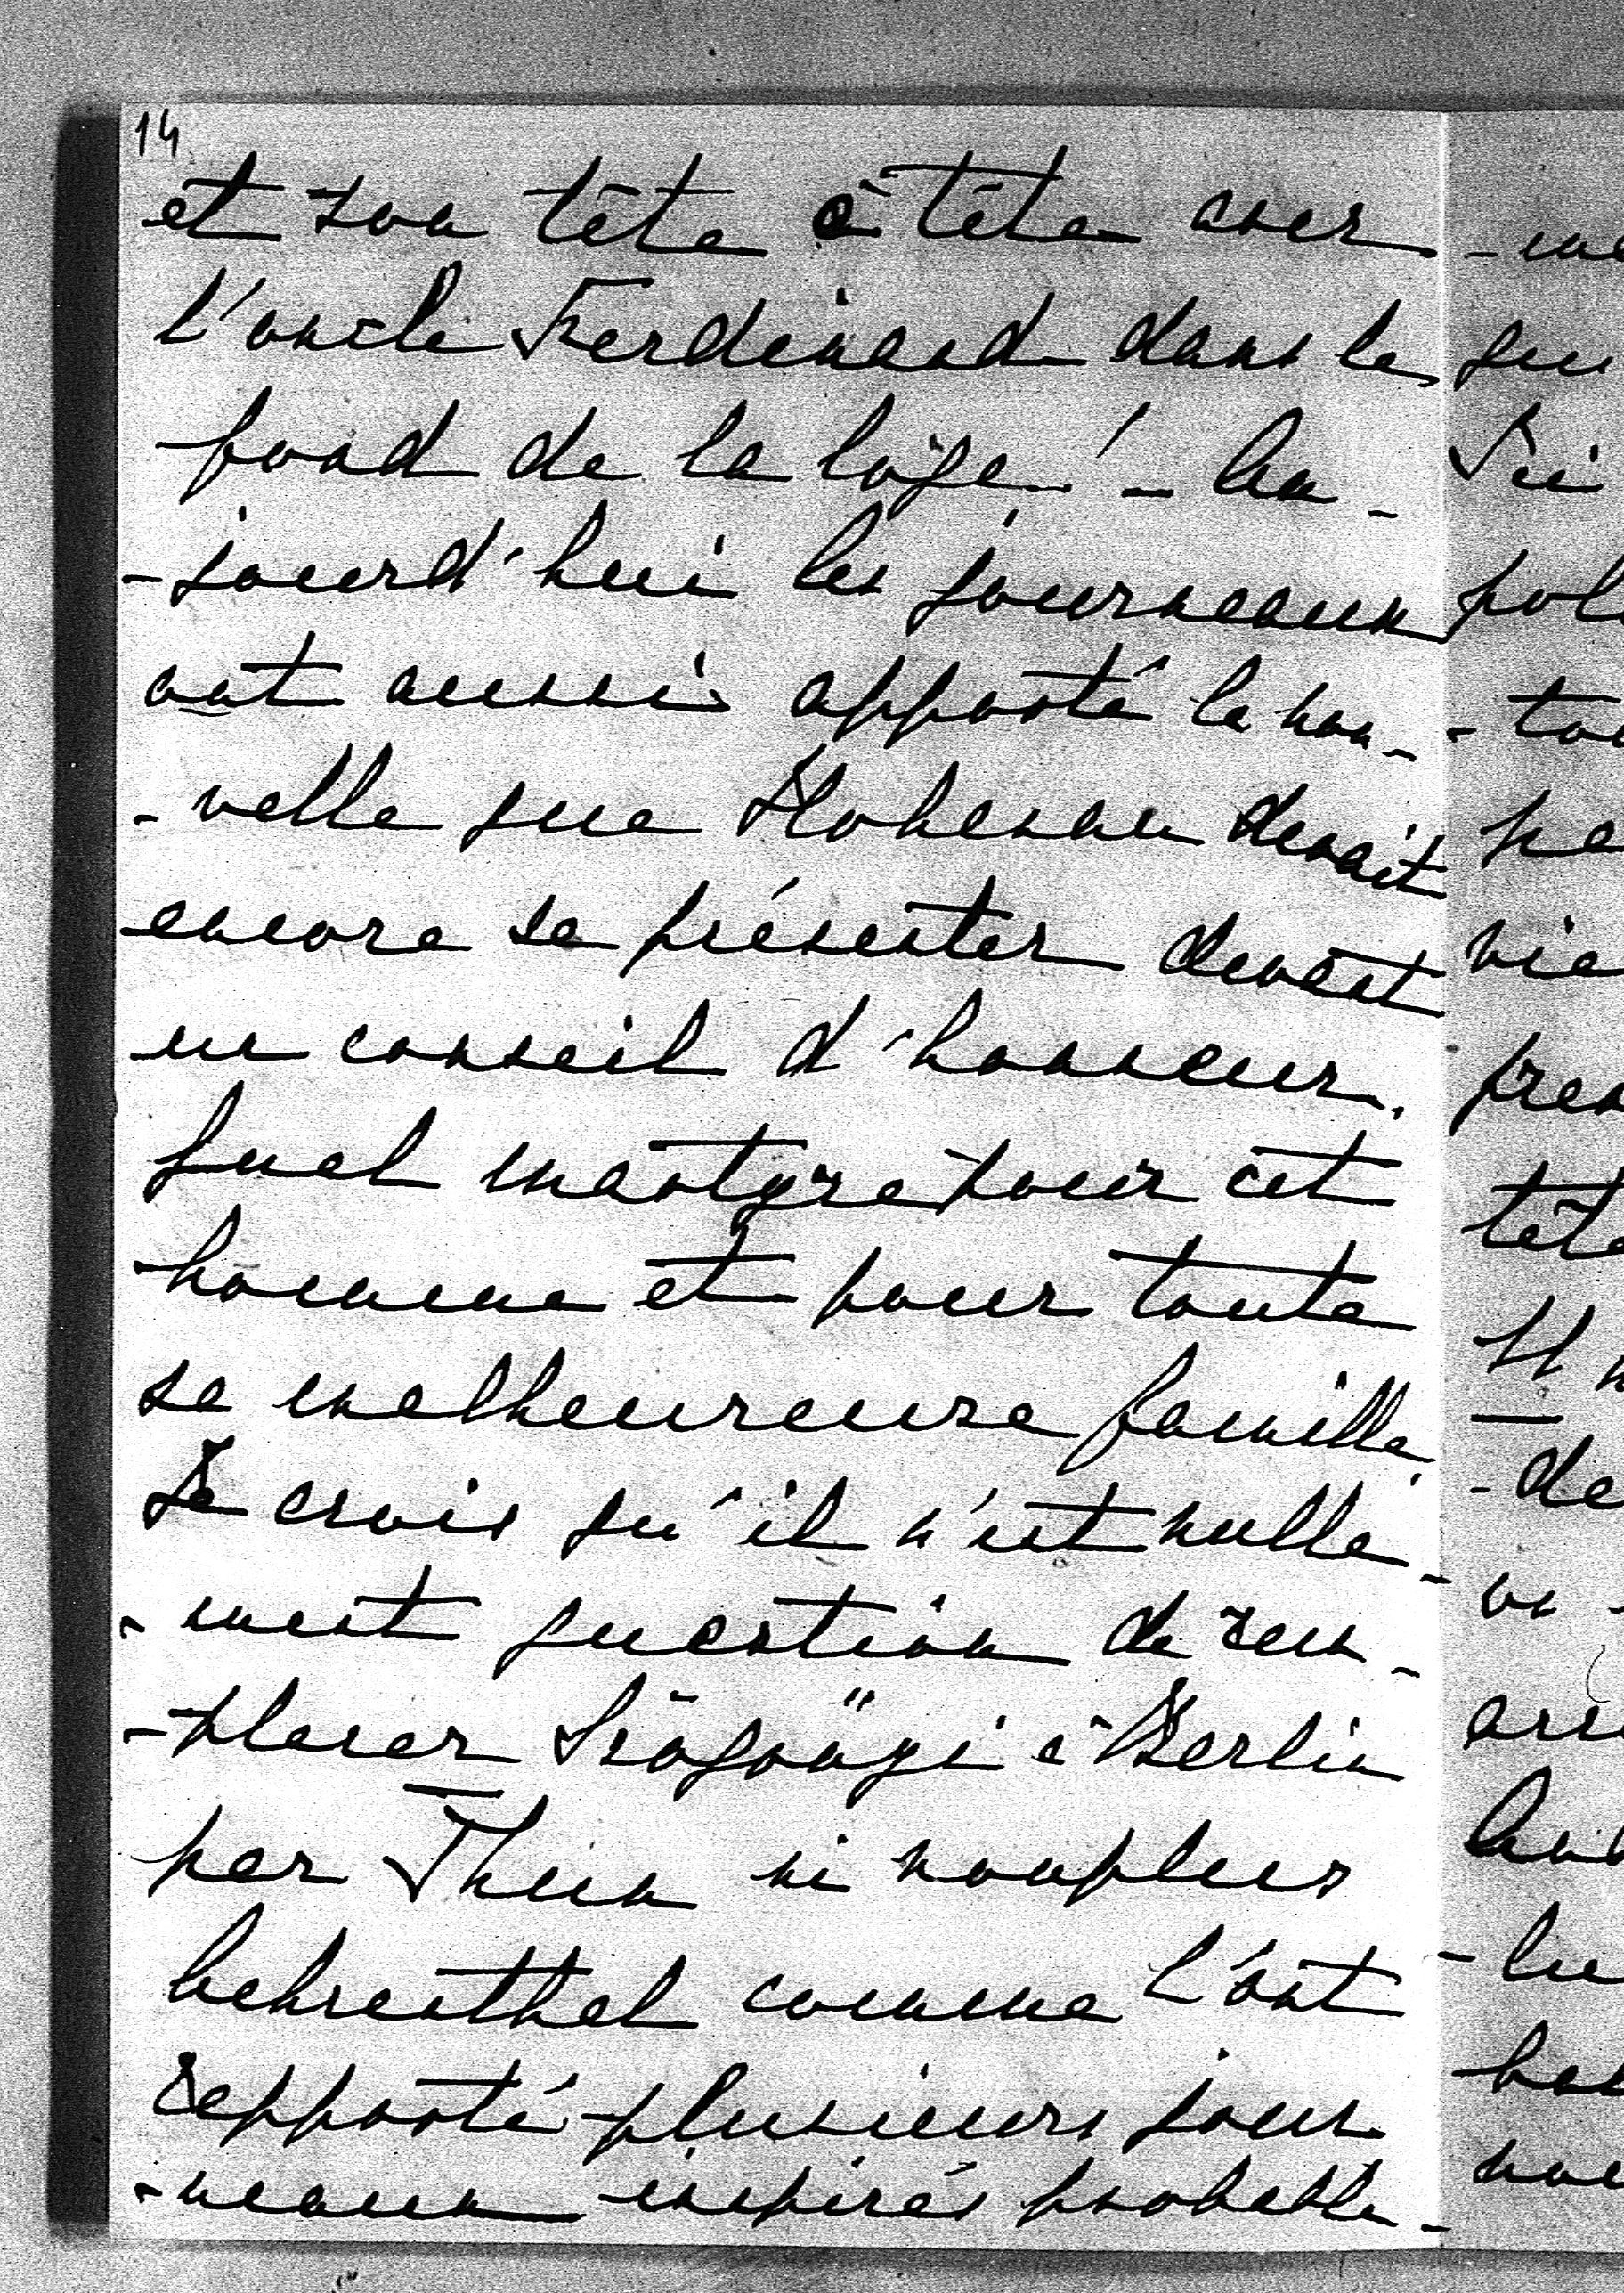 14
et son tête à tête avec
l'oncle Ferdinand dans le
fond de la loge! - Au-
-jourd'hui les journeaux
ont aussi apporté la nou-
-velle que Hohenau devait
encore se présenter devant
un conseil d'honneur.
Quel martyre pour cet
homme et pour toute
sa malheureuse famille.
Je crois qu'il n'est nulle-
-ment question de rem-
-placer Szögyényi à Berlin
par Thun ni non plus
Aehrenthal comme l'ont
rapporté plusieurs jour-
-neaux inspirés probable-